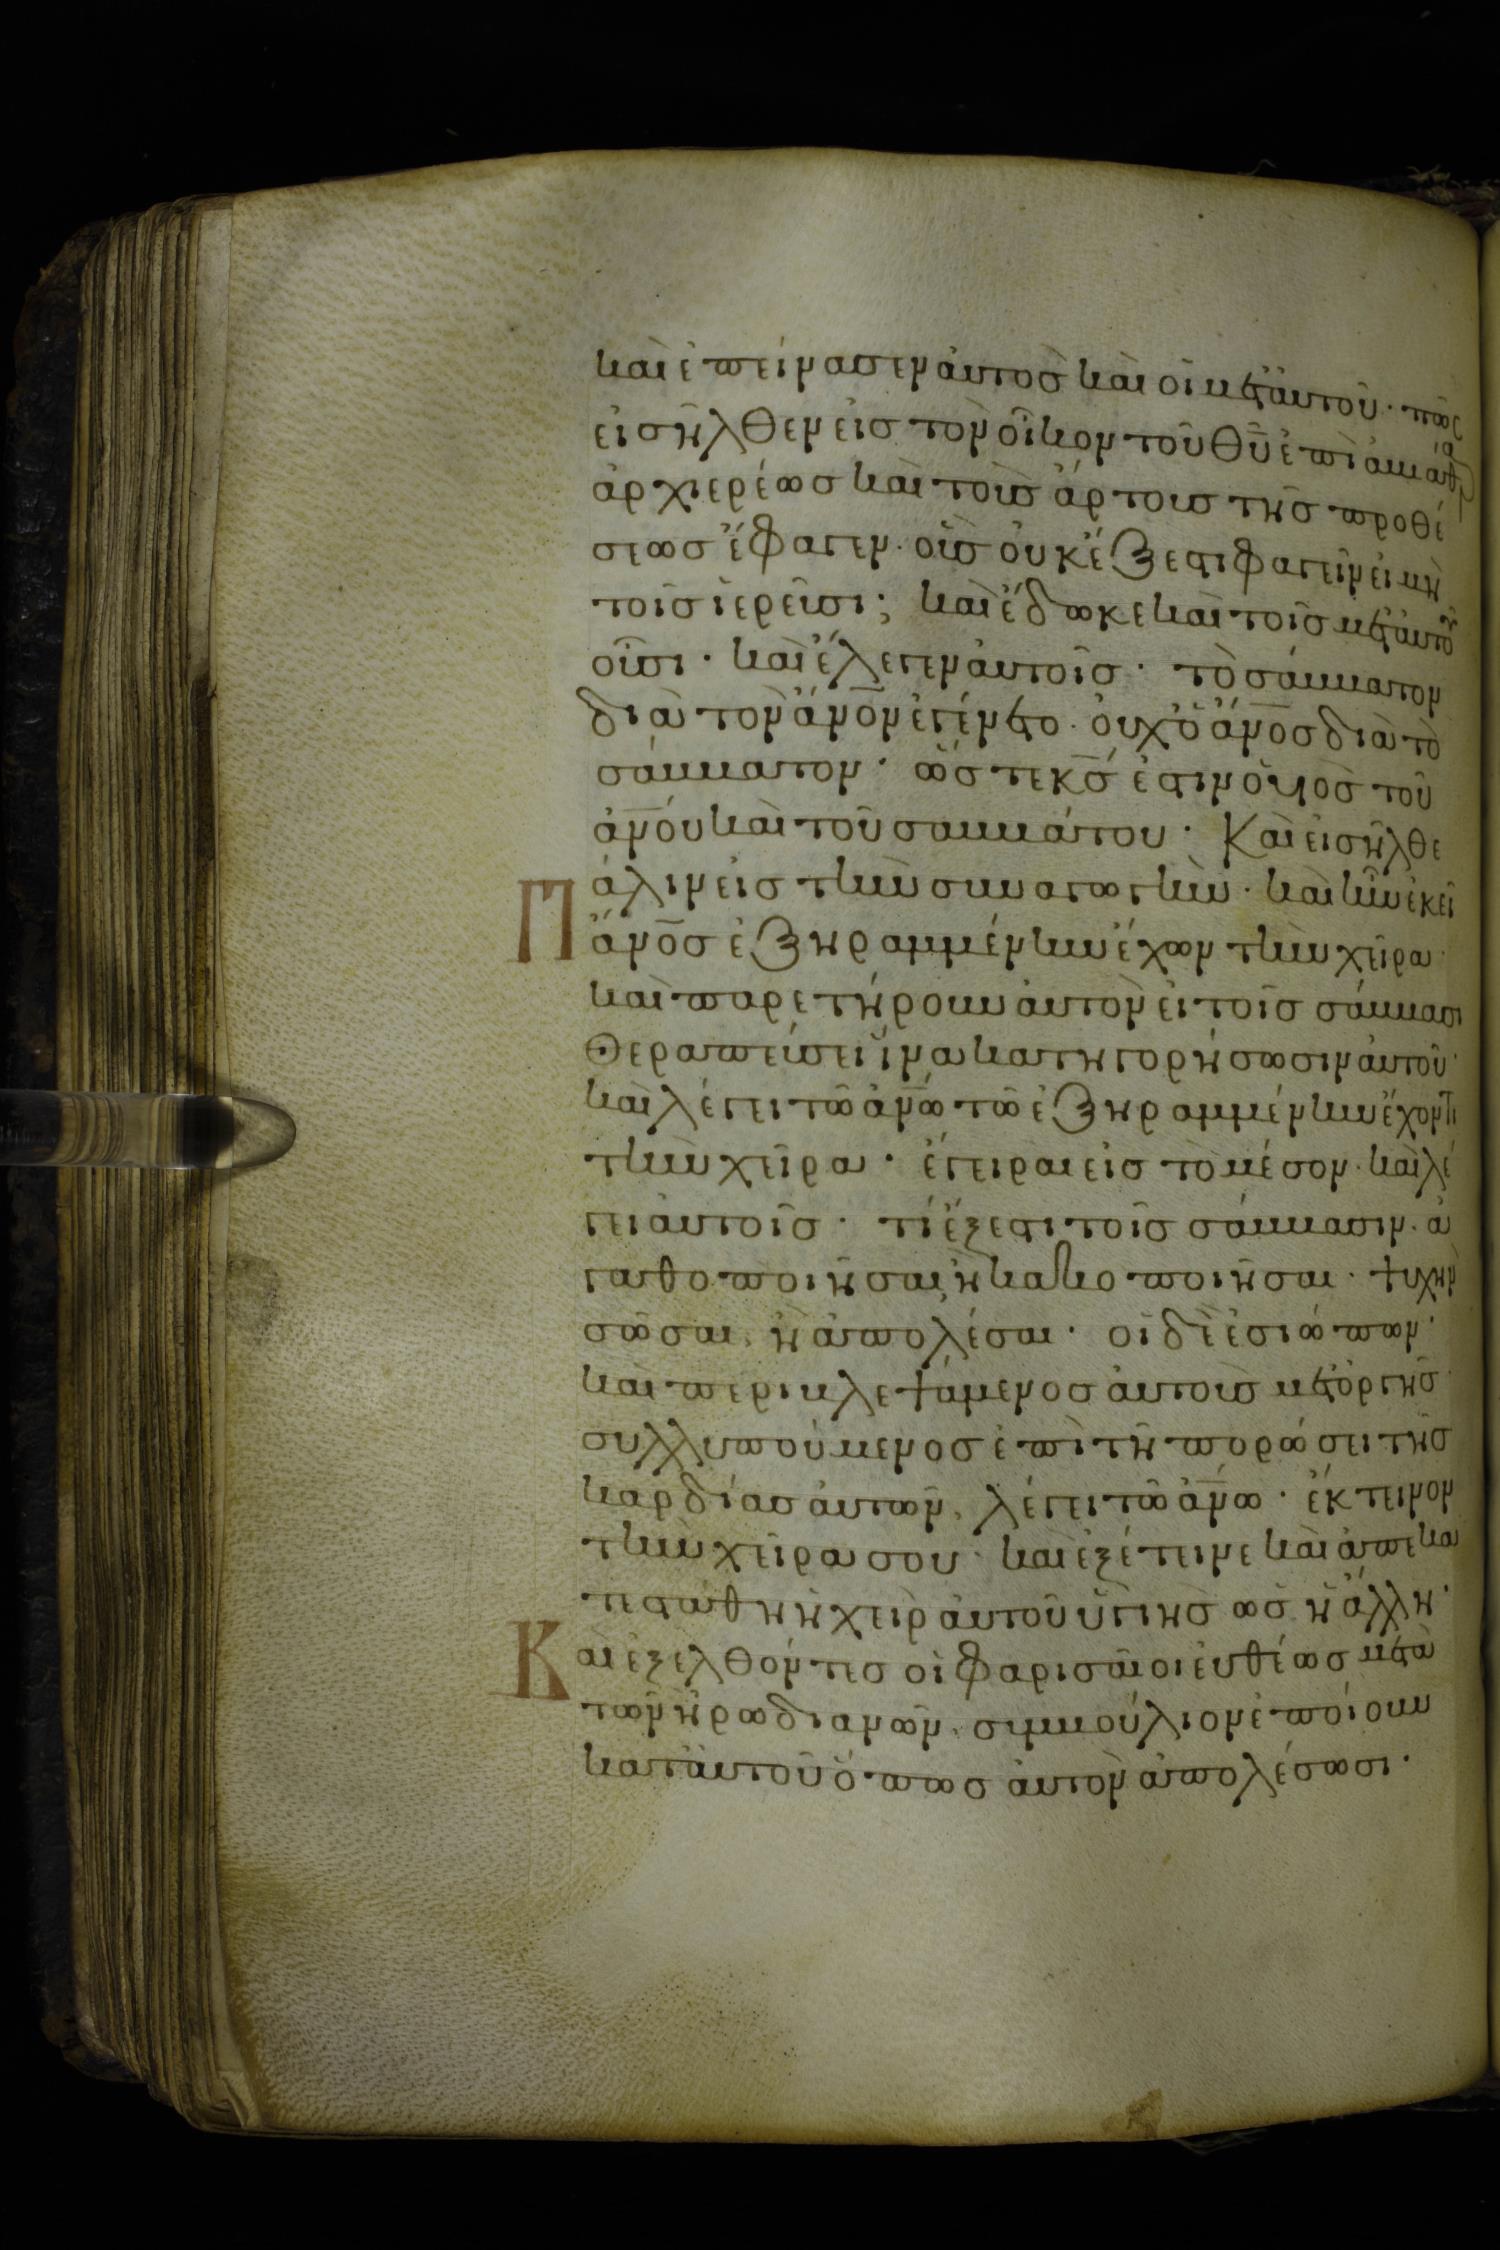 καὶ ἐπείνασεν αὐτὸς καὶ οἱ μετ' αὐτοῦ · πῶς
εἰσῆλθεν εἰς τὸν οἶκον τοῦ θῡ ἐπὶ ἀβιάθαρ
ἀρχιερέως καὶ τοὺς ἄρτους τῆς προθέ
σεως ἔφαγεν · οὓς οὐκ ἔξεστι φαγεῖν εἰ μὴ
τοῖς ἱερεῦσι; καὶ ἔδωκε καὶ τοῖς μετ' αὐτοῦ
οὖσι · καὶ ἔλεγεν αὐτοῖς · τὸ σάββατον
διὰ τὸν ἄν̅ον ἐγένετο · οὐχ ὁ ἄν̅ος διὰ τὸ
σάββατον · ὥστε κ̅ς ἐστιν ὁ υἱὸς τοῦ
ἀν̅ου καὶ τοῦ σαββάτου · Καὶ εἰσῆλθε
Πάλιν εἰς τὴν συναγωγὴν · καὶ ἦν ἐκεῖ
ἄν̅ος ἐξηραμμένην ἔχων τὴν χεῖρα ·
καὶ παρετήρουν αὐτὸν εἰ τοῖς σάββασι
θεραπεύσει ἵνα κατηγορήσωσιν αὐτοῦ ·
καὶ λέγει τῶ ἀν̅ω τῶ ἐξηραμμένην ἔχοντι
τὴν χεῖρα · ἔγειραι εἰς τὸ μέσον · καὶ λέ
γει αὐτοῖς · τί ἔξεστι τοῖς σάββασιν · ἀ
γαθοποιῆσαι ἢ κακοποιῆσαι · ψυχὴν
σῶσαι, ἢ ἀπολέσαι · οἱ δὲ ἐσιώπων ·
καὶ περιβλεψάμενος αὐτοὺς μετ' ὀργῆς ·
συλλυπούμενος ἐπὶ τῆ πορώσει τῆς
καρδίας αὐτῶν, λέγει τῶ ἀν̅ω · ἔκτεινον
τὴν χεῖρα σου · καὶ ἐξέτεινε καὶ ἀπεκα
τεστάθη ἡ χεὶρ αὐτοῦ ὑγιὴς ὡς ἡ ἄλλη ·
Καὶ ἐξελθόντες οἱ φαρισαῖοι εὐθέως μετὰ
τῶν ἡρωδιανῶν, συμβούλιον ἐποίουν
κατ' αὐτοῦ ὅπως αὐτὸν ἀπολέσωσι ·